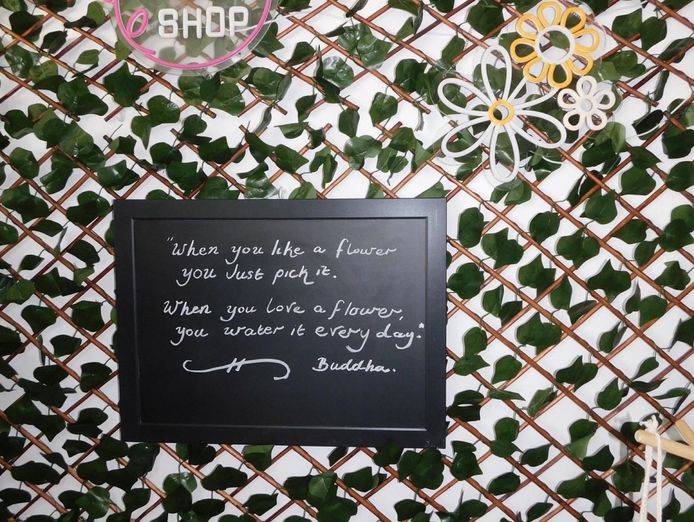 SHOP
"When you like a flower
you Just pick it.
When you love a flower,
you water it every day."
Buddha.